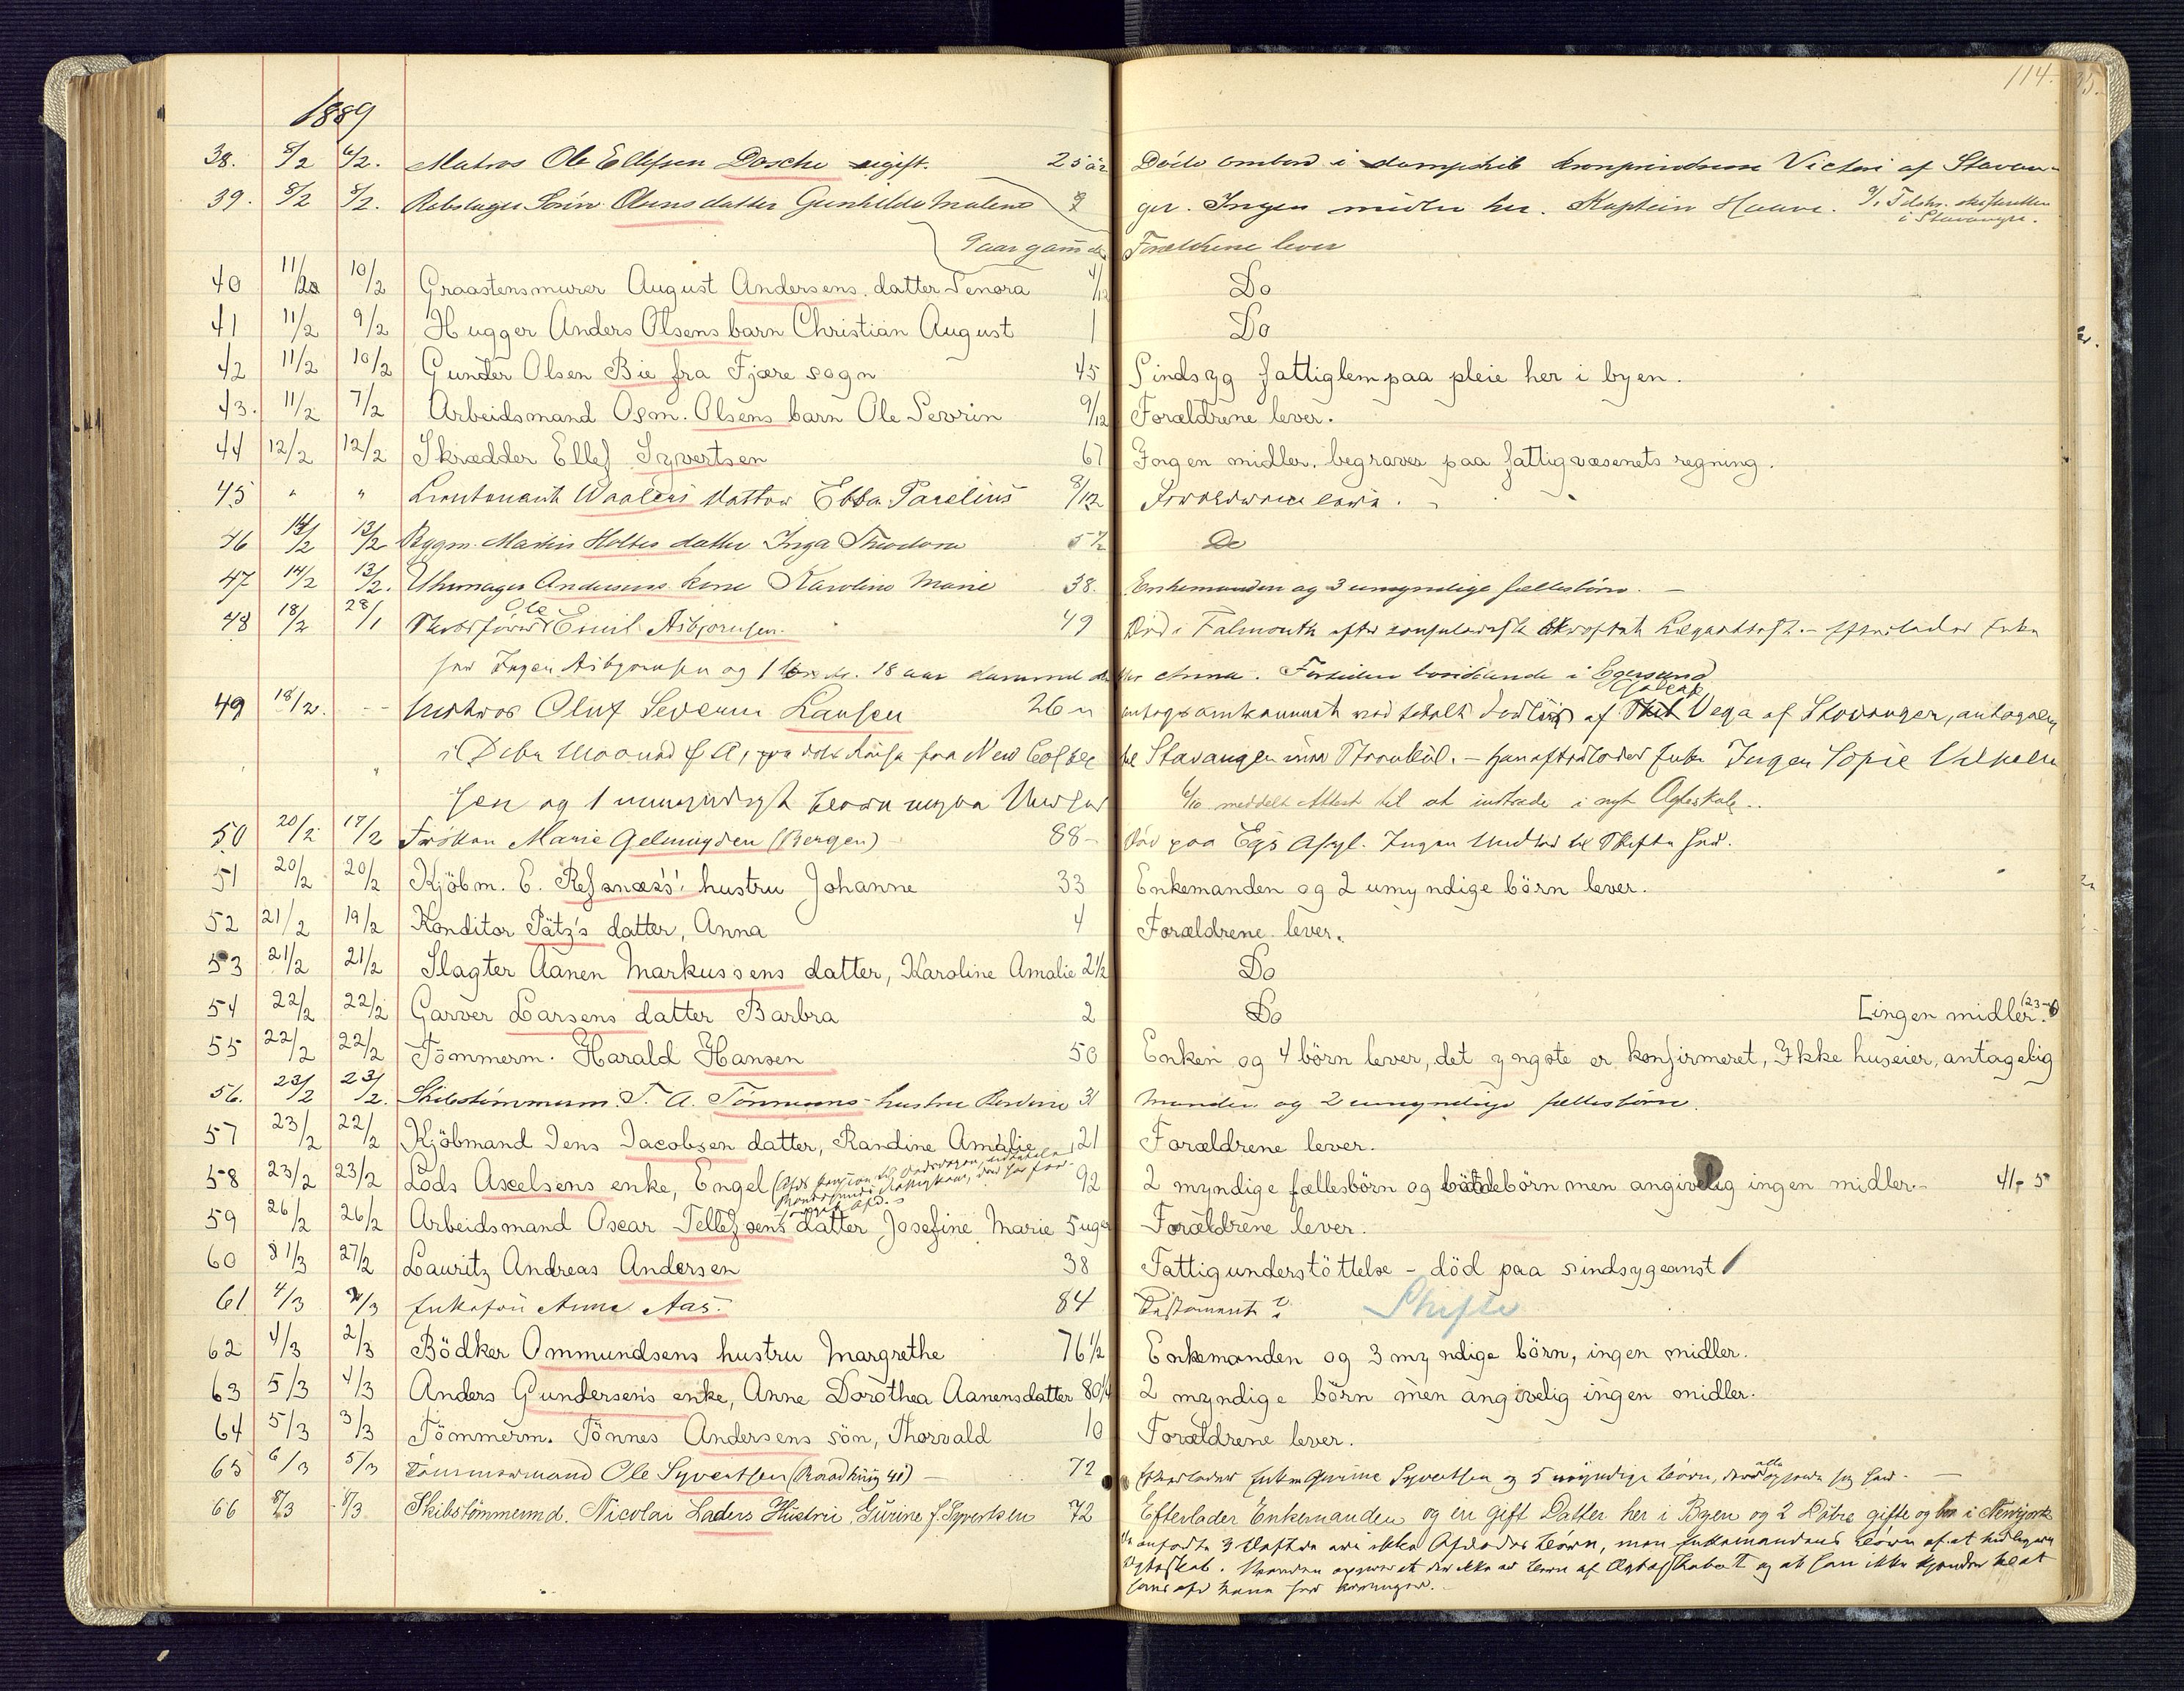 114.
1889
38. 8/2 6/2. Matros Ole Ellefsen Dosche ugift. 25 år Døde ombord i dampskib kronprindsesse Victoria af Stavan-
39. 8/2 8/2. Rebslager Sörin Olsens datter Gunhilda Malene 9 ger. Ingen midler her. Kaptein Haave.
i Stavanger.
9 aar gam̄el Forældrene lever
40 11/2 10/2 Graastensmurer August Andersens datter Senora 4/12 Do
41 11/2 9/2 Hugger Anders Olsens barn Christian August 1 Do
42 11/2 10/2 Gunder Olsen Bie fra Fjære sogn 45 Sindsyg fattiglem paa pleie her i byen.
43. 11/2 7/2 Arbeidsmand Osm. Olsens barn Ole Sevrin 9/12 Forældrene lever.
44 12/2 12/2 Skrædder Ellef Syvertsen 67 Ingen midler. begraves paa fattigvæsenets regning.
45 " " Lieutenant Waalers datter Ebba Parelius 8/12 Forældrene lever.
46 14/2 13/2 Bygm. Martin Holtes datter Inga Theodora 5 1/2 Do
47 14/2 13/2. Uhrmager Andersens kone Karoline Marie 38. Enkemanden og 3 umyndige fællesbörn. -
48 18/2 28/1 Skibsförer Ole Emil Asbjornsen. 49 Död i Falmouth efter konsulatets Efterlader Enke
fød Inger Asbjornsen og 1 18 aar gammel datter Anna. Familien bosiddende i Egersund
49 18/2. - - Matros Oluf Severin Larsen 26 - af Skib Galeas Vega af Stavanger, antagelig
paa Reise fra New til Stavanger - han efterlader Enke Inger Sofie
sen og 1 umyndigt barn 6/10 meddelt attest til at indtræde i nyt Ægteskab.
50 20/2 17/2 Fröken Marie Gelmuyden (Bergen) 88 - Död paa Egs Asyl. Ingen Midler til Skifte her.
51 20/2 20/2 Kjöbm. E. Refsnæs's hustru Johanne 33 Enkemanden og 2 umyndige börn lever.
52 21/2 19/2 Konditor Pätz's datter, Anna 4 Forældrene lever.
53 21/2 21/2 Slagter Aanen Markussens datter, Karoline Amalie 2 1/2 Do
54 22/2 22/2 Garver Larsens datter Barbra 2 Do [ingen midler.
55 22/2 22/2 Tömmerm. Harald Hansen 50 Enken og 4 börn lever, det yngste er konfirmeret, Ikke huseier, antagelig
56. 23/2 23/2. Skibstömmerm. T. A. Tönnesens hustru Berdine 31 Manden og 2 umyndige fællesbörn.
57 23/2 22/2 Kjöbmand Jens Jacobsen datter, Randine Amalie 21 Forældrene lever.
58 23/2 23/2 Lods Axelsens enke, Engel 92 2 myndige fællesbörn og börnebörn men angivelig ingen midler. - 41 - 5
59 26/2 26/2 Arbeidsmand Oscar Tellefsens datter Josefine Marie 5 uger Forældrene lever.
60 1/3 27/2 Lauritz Andreas Andersen 38 Fattigunderstöttelse - död paa sindsygeanst
61 4/3 2/3 Enkefru Anne Aas. 84 Testament? Skifte
62 4/3 2/3 Bödker Ommundsens hustru Margrethe 76 1/2 Enkemanden og 3 myndige börn, ingen midler.
63 5/3 4/3 Anders Gundersens enke, Anne Dorothea Aanensdatter 80 1/4 2 myndige börn men angivelig ingen midler.
64 5/3 3/3 Tömmerm. Tönnes Andersens sön, Thorvald 10 Forældrene lever.
65 6/3 5/3 Tömmermand Ole Syvertsen 72 Efterlader Enken Gurine Syvertsen og 5 myndige Börn, der alle opholde sig her. -
66 8/3 8/3 Skibstömmermd. Nicolai Laders Hustru, Gurine f. Syvertsen 72 Efterlader Enkemanden og en gift Datter her i Byen og 2 Döttre gifte og bor i Newyork
anförte 3 Döttre ere ikke Afdödes Börn, men Enkemandens Börn af et tidligere
Ægteskab. Manden opgiver at der ikke er Börn af Ægteskabet og at han ikke kjender til at
hans afd. Kone har Arvinger.